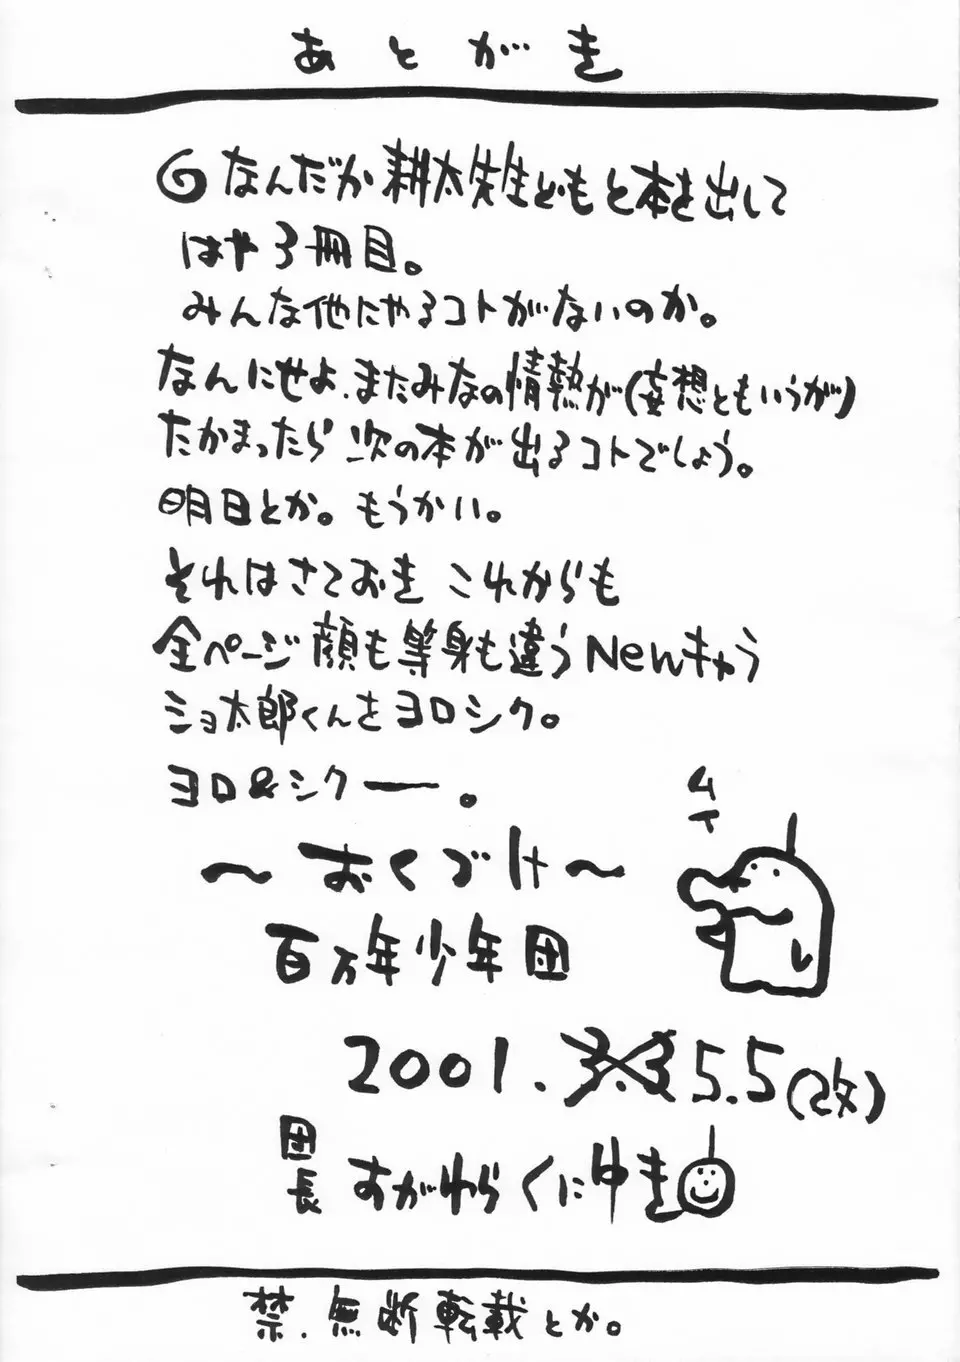 あとがき
なんだか耕太先生どもと本を出して
はや3冊目。
みんな他にやるコトがないのか。
なんにせよ、またみなの情熱が(妄想ともいうが)
たかまったら次の本が出るコトでしょう。
明日とか。もうかい。
それはさておき これからも
全ページ顔も等身も違うNewキャラ
ショ太郎くんをヨロシク。
ヨロ&シクー。
ムイ
〜おくづけ〜
百万年少年団
2001.3.3 5.5(改)
団長 すがわらくにゆき
禁.無断転載とか。